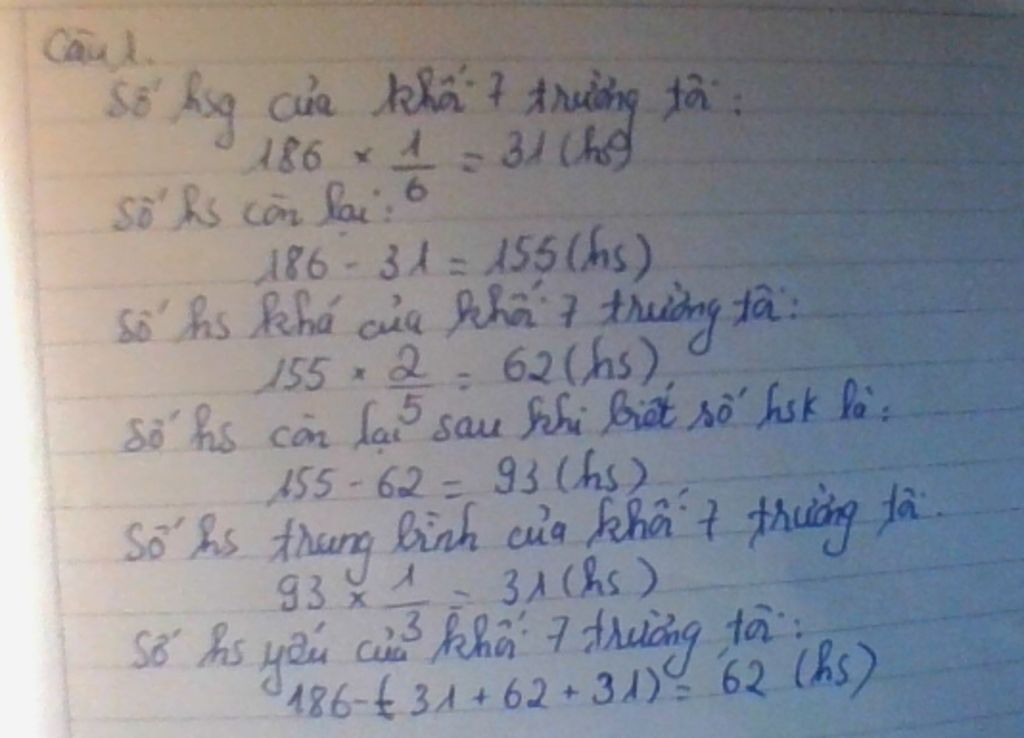 Câu 1.
Số hsg của khối 7 trường tôi:
186 × 1/6 = 31 (hsg)
Số hs còn lại:
186 - 31 = 155 (hs)
Số hs khá của khối 7 trường tôi:
155 × 2/5 = 62 (hs)
Số hs còn lại sau khi biết số hsk là:
155 - 62 = 93 (hs)
Số hs trung bình của khối 7 trường tôi
93 × 1/3 = 31 (hs)
Số hs yếu của khối 7 trường tôi:
186 - (31 + 62 + 31) = 62 (hs)